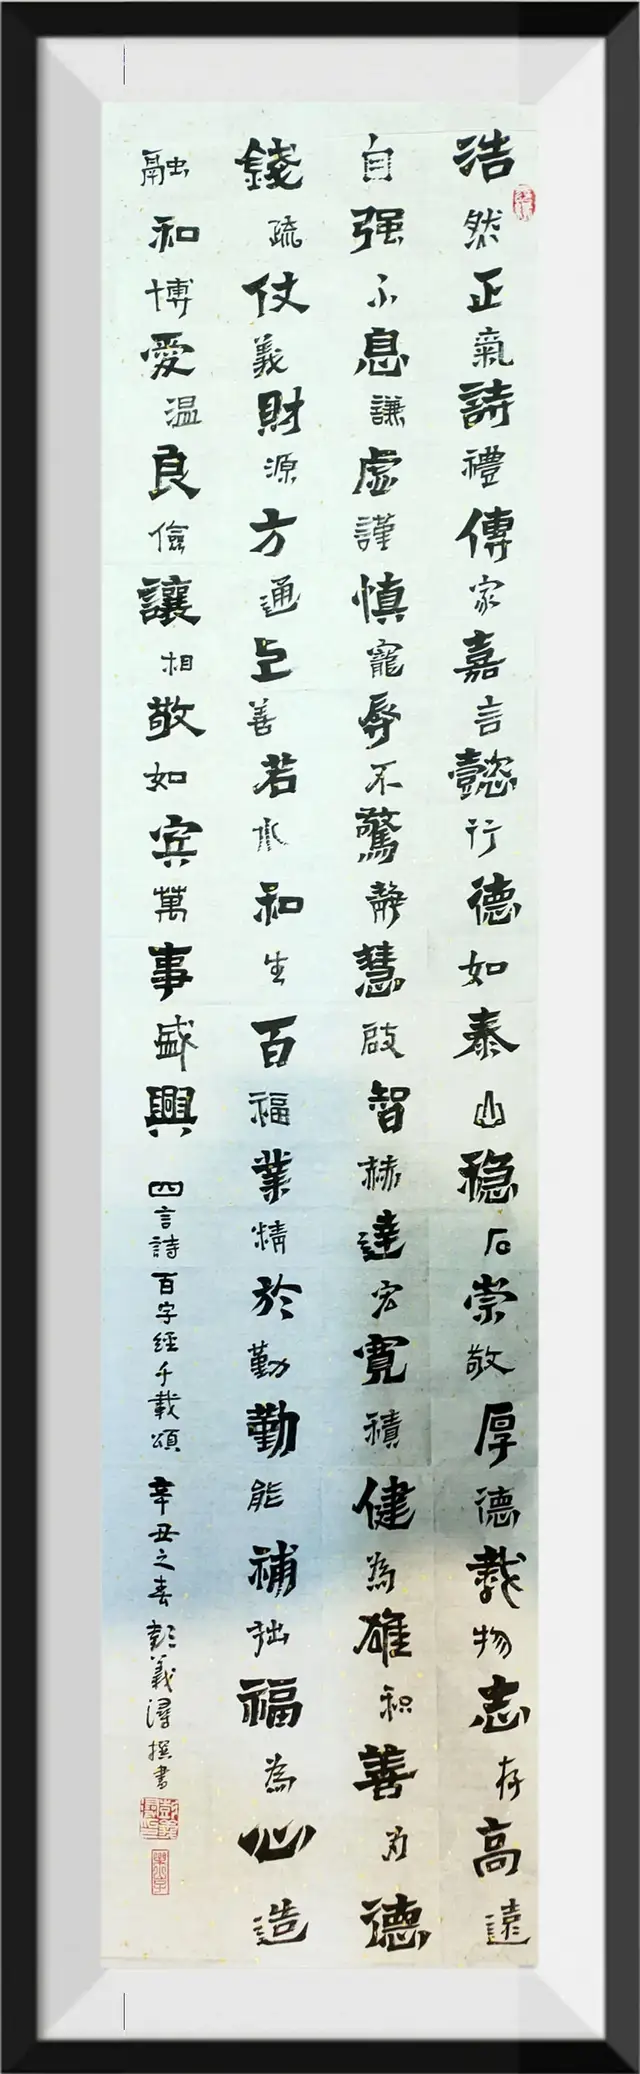 浩然正氣詩禮傳家嘉言懿行德如泰山稳石崇敬厚德載物志存高遠
自强不息謙虛謹慎寵辱不驚靜慧啟智赫達宏寬積健為雄积善为德
錢疏仗義財源方通上善若水和生百福業精於勤勤能補拙福為心造
融和博愛温良儉讓相敬如宾萬事盛興 四言詩百字經千載頌 辛丑之春彭義潯撰書